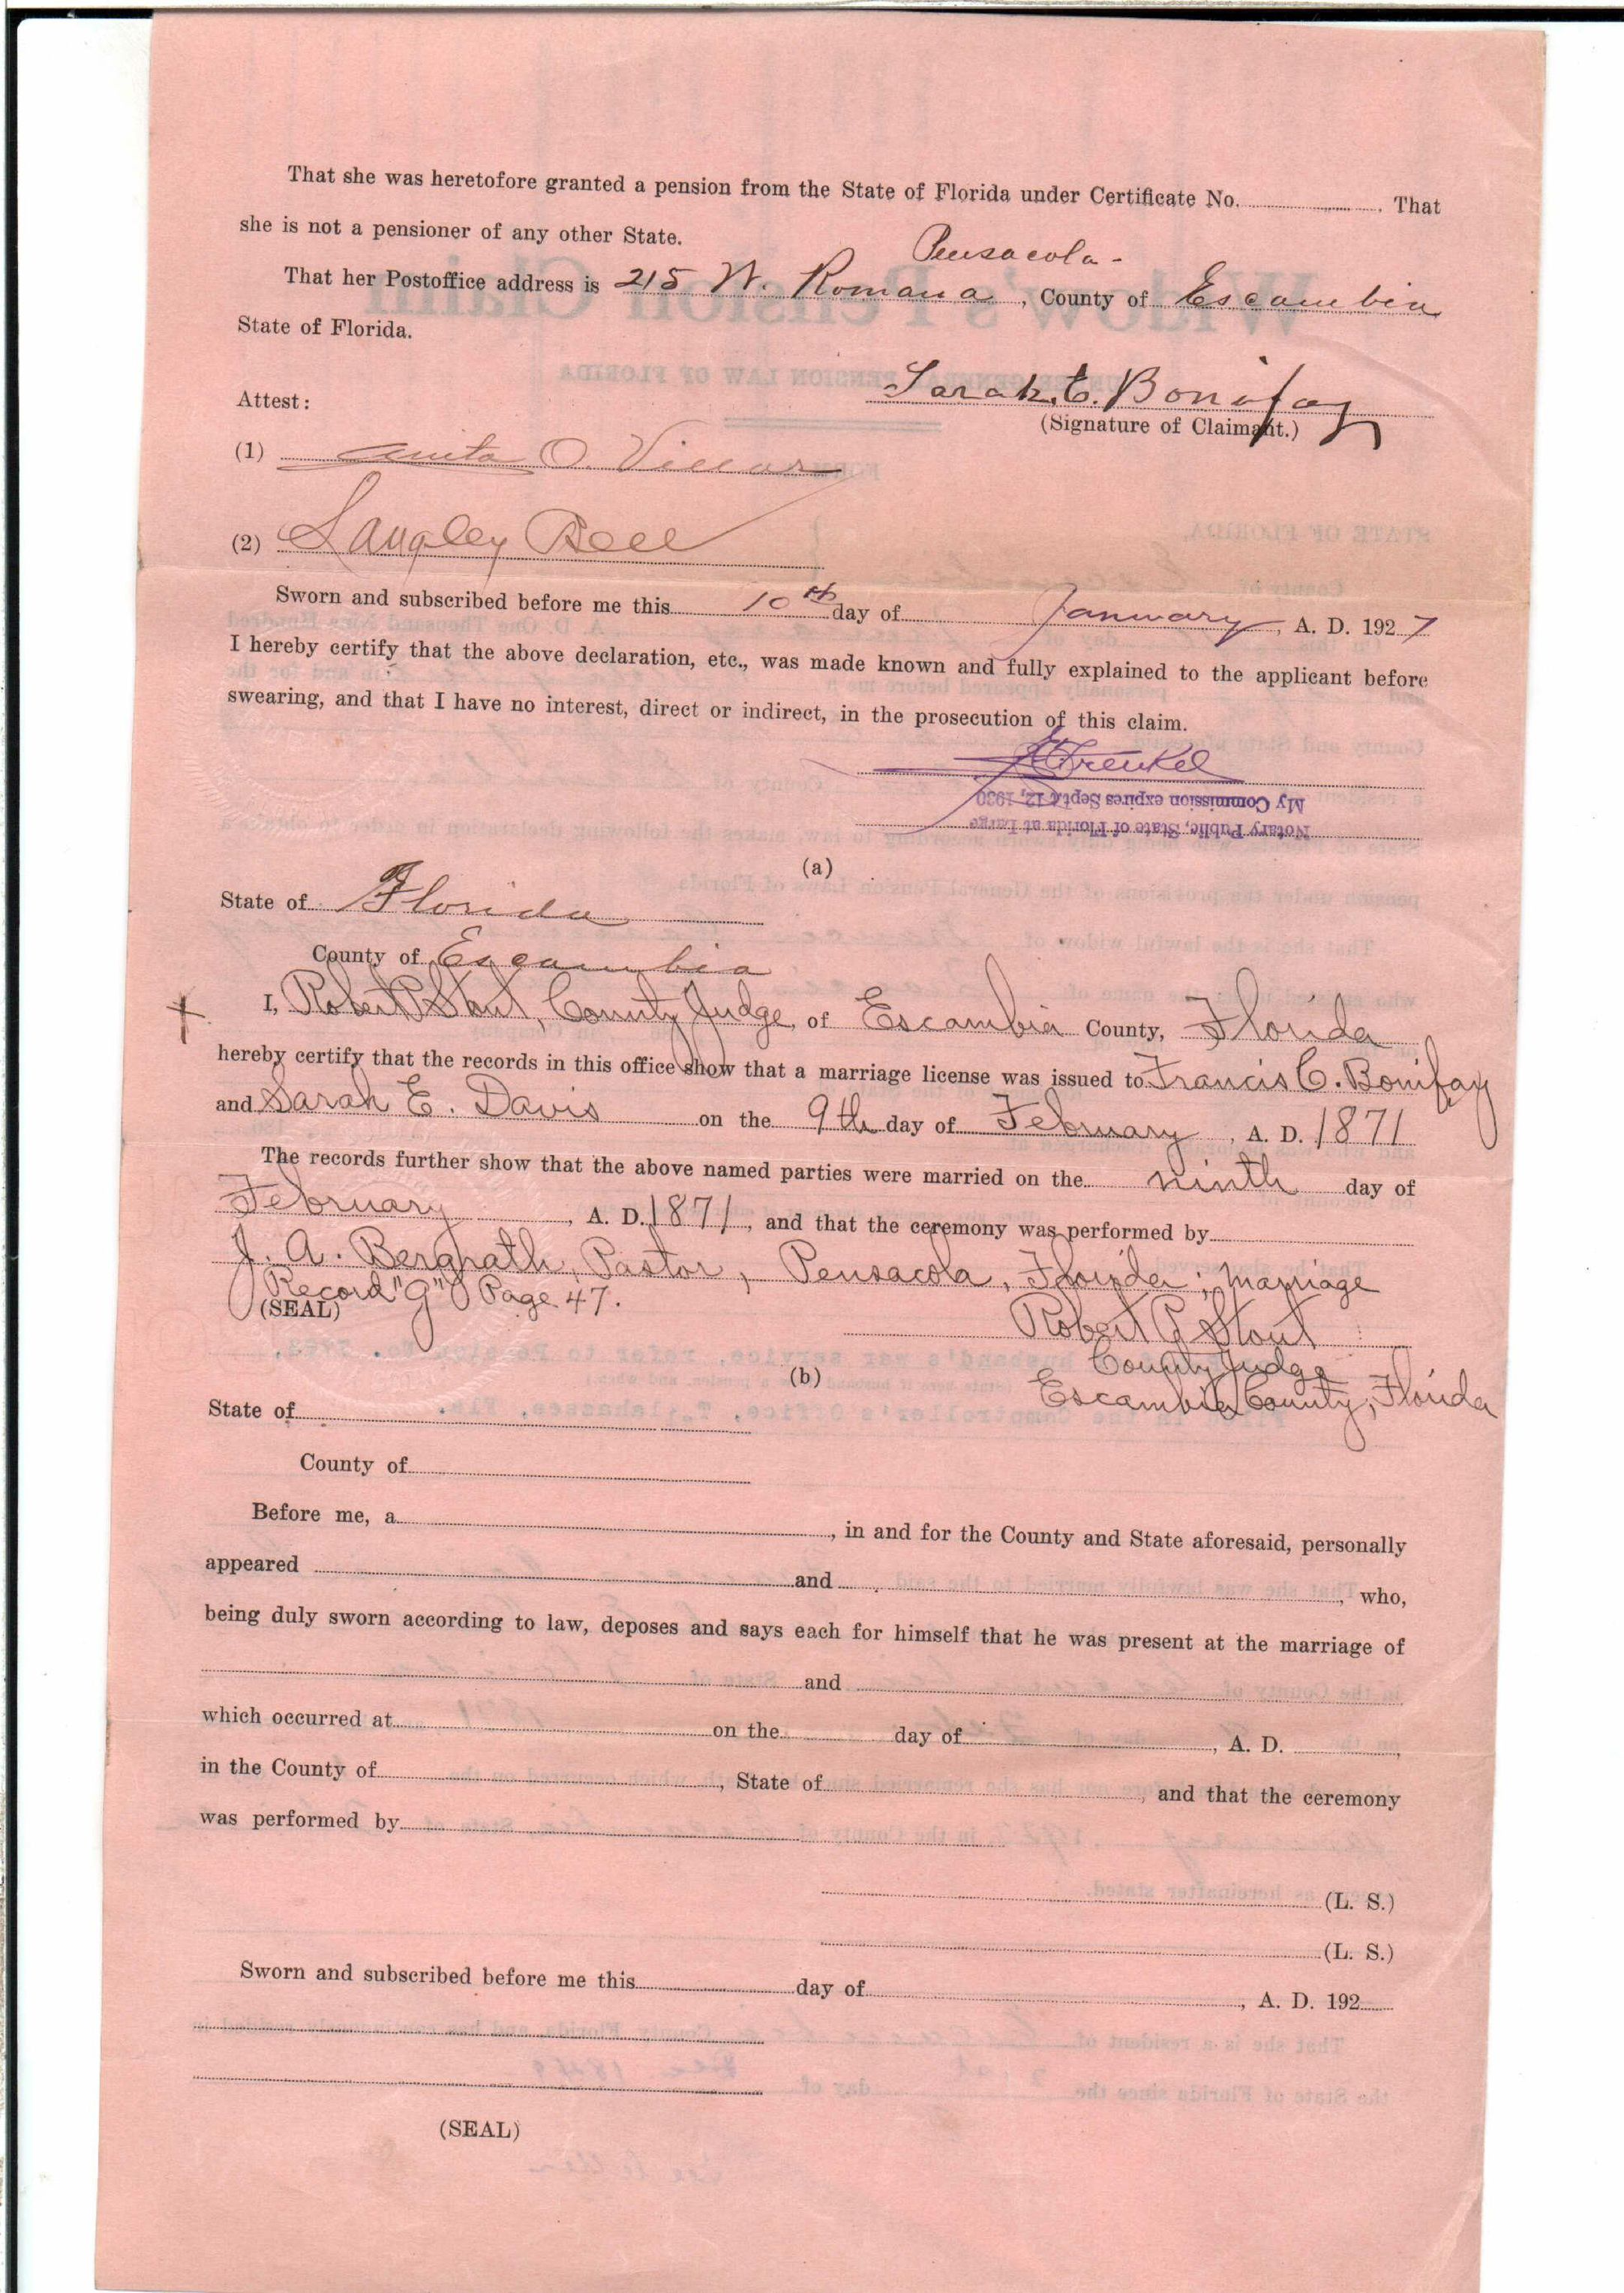 That she was heretofore granted a pension from the State of Florida under Certificate No. . That
she is not a pensioner of any other State.
Pensacola -
That her Postoffice address is 215 W. Romana, County of Escambia
State of Florida.
Sarah E. Bonifay
Attest:
(Signature of Claimant.)
(1) Anita O. Villar
(2) Langley Bell
Sworn and subscribed before me this 10th day of January, A. D. 1927
I hereby certify that the above declaration, etc., was made known and fully explained to the applicant before
swearing, and that I have no interest, direct or indirect, in the prosecution of this claim.
Frenkel
My Commission expires Sept. 12, 1930
Notary Public, State of Florida at Large
(a)
State of Florida
County of Escambia
I, Robert P Stout, County Judge, of Escambia County, Florida
hereby certify that the records in this office show that a marriage license was issued to Francis C. Bonifay
and Sarah E. Davis on the 9th day of February, A. D. 1871
The records further show that the above named parties were married on the ninth day of
February, A. D. 1871, and that the ceremony was performed by
J. A. Bergrath, Pastor, Pensacola, Florida; Marriage
Record "G" Page 47.
(SEAL)
Robert P Stout
County Judge
(b)
Escambia County, Florida
State of
County of
Before me, a , in and for the County and State aforesaid, personally
appeared and , who,
being duly sworn according to law, deposes and says each for himself that he was present at the marriage of
and
which occurred at on the day of , A. D. ,
in the County of , State of , and that the ceremony
was performed by
(L. S.)
(L. S.)
Sworn and subscribed before me this day of , A. D. 192
(SEAL)